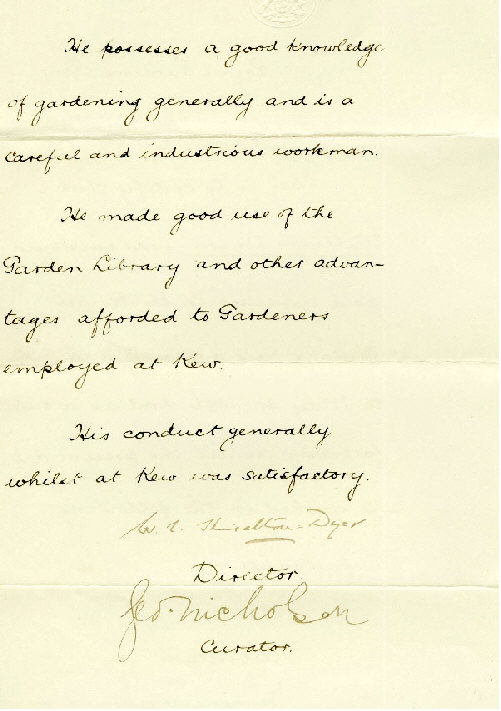 He possesses a good knowledge
of gardening generally and is a
careful and industrious workman.
He made good use of the
Garden Library and other advan-
tages afforded to Gardeners
employed at Kew.
His conduct generally
whilst at Kew was satisfactory.
W. T. Thiselton-Dyer
Director.
Geo. Nicholson
Curator.